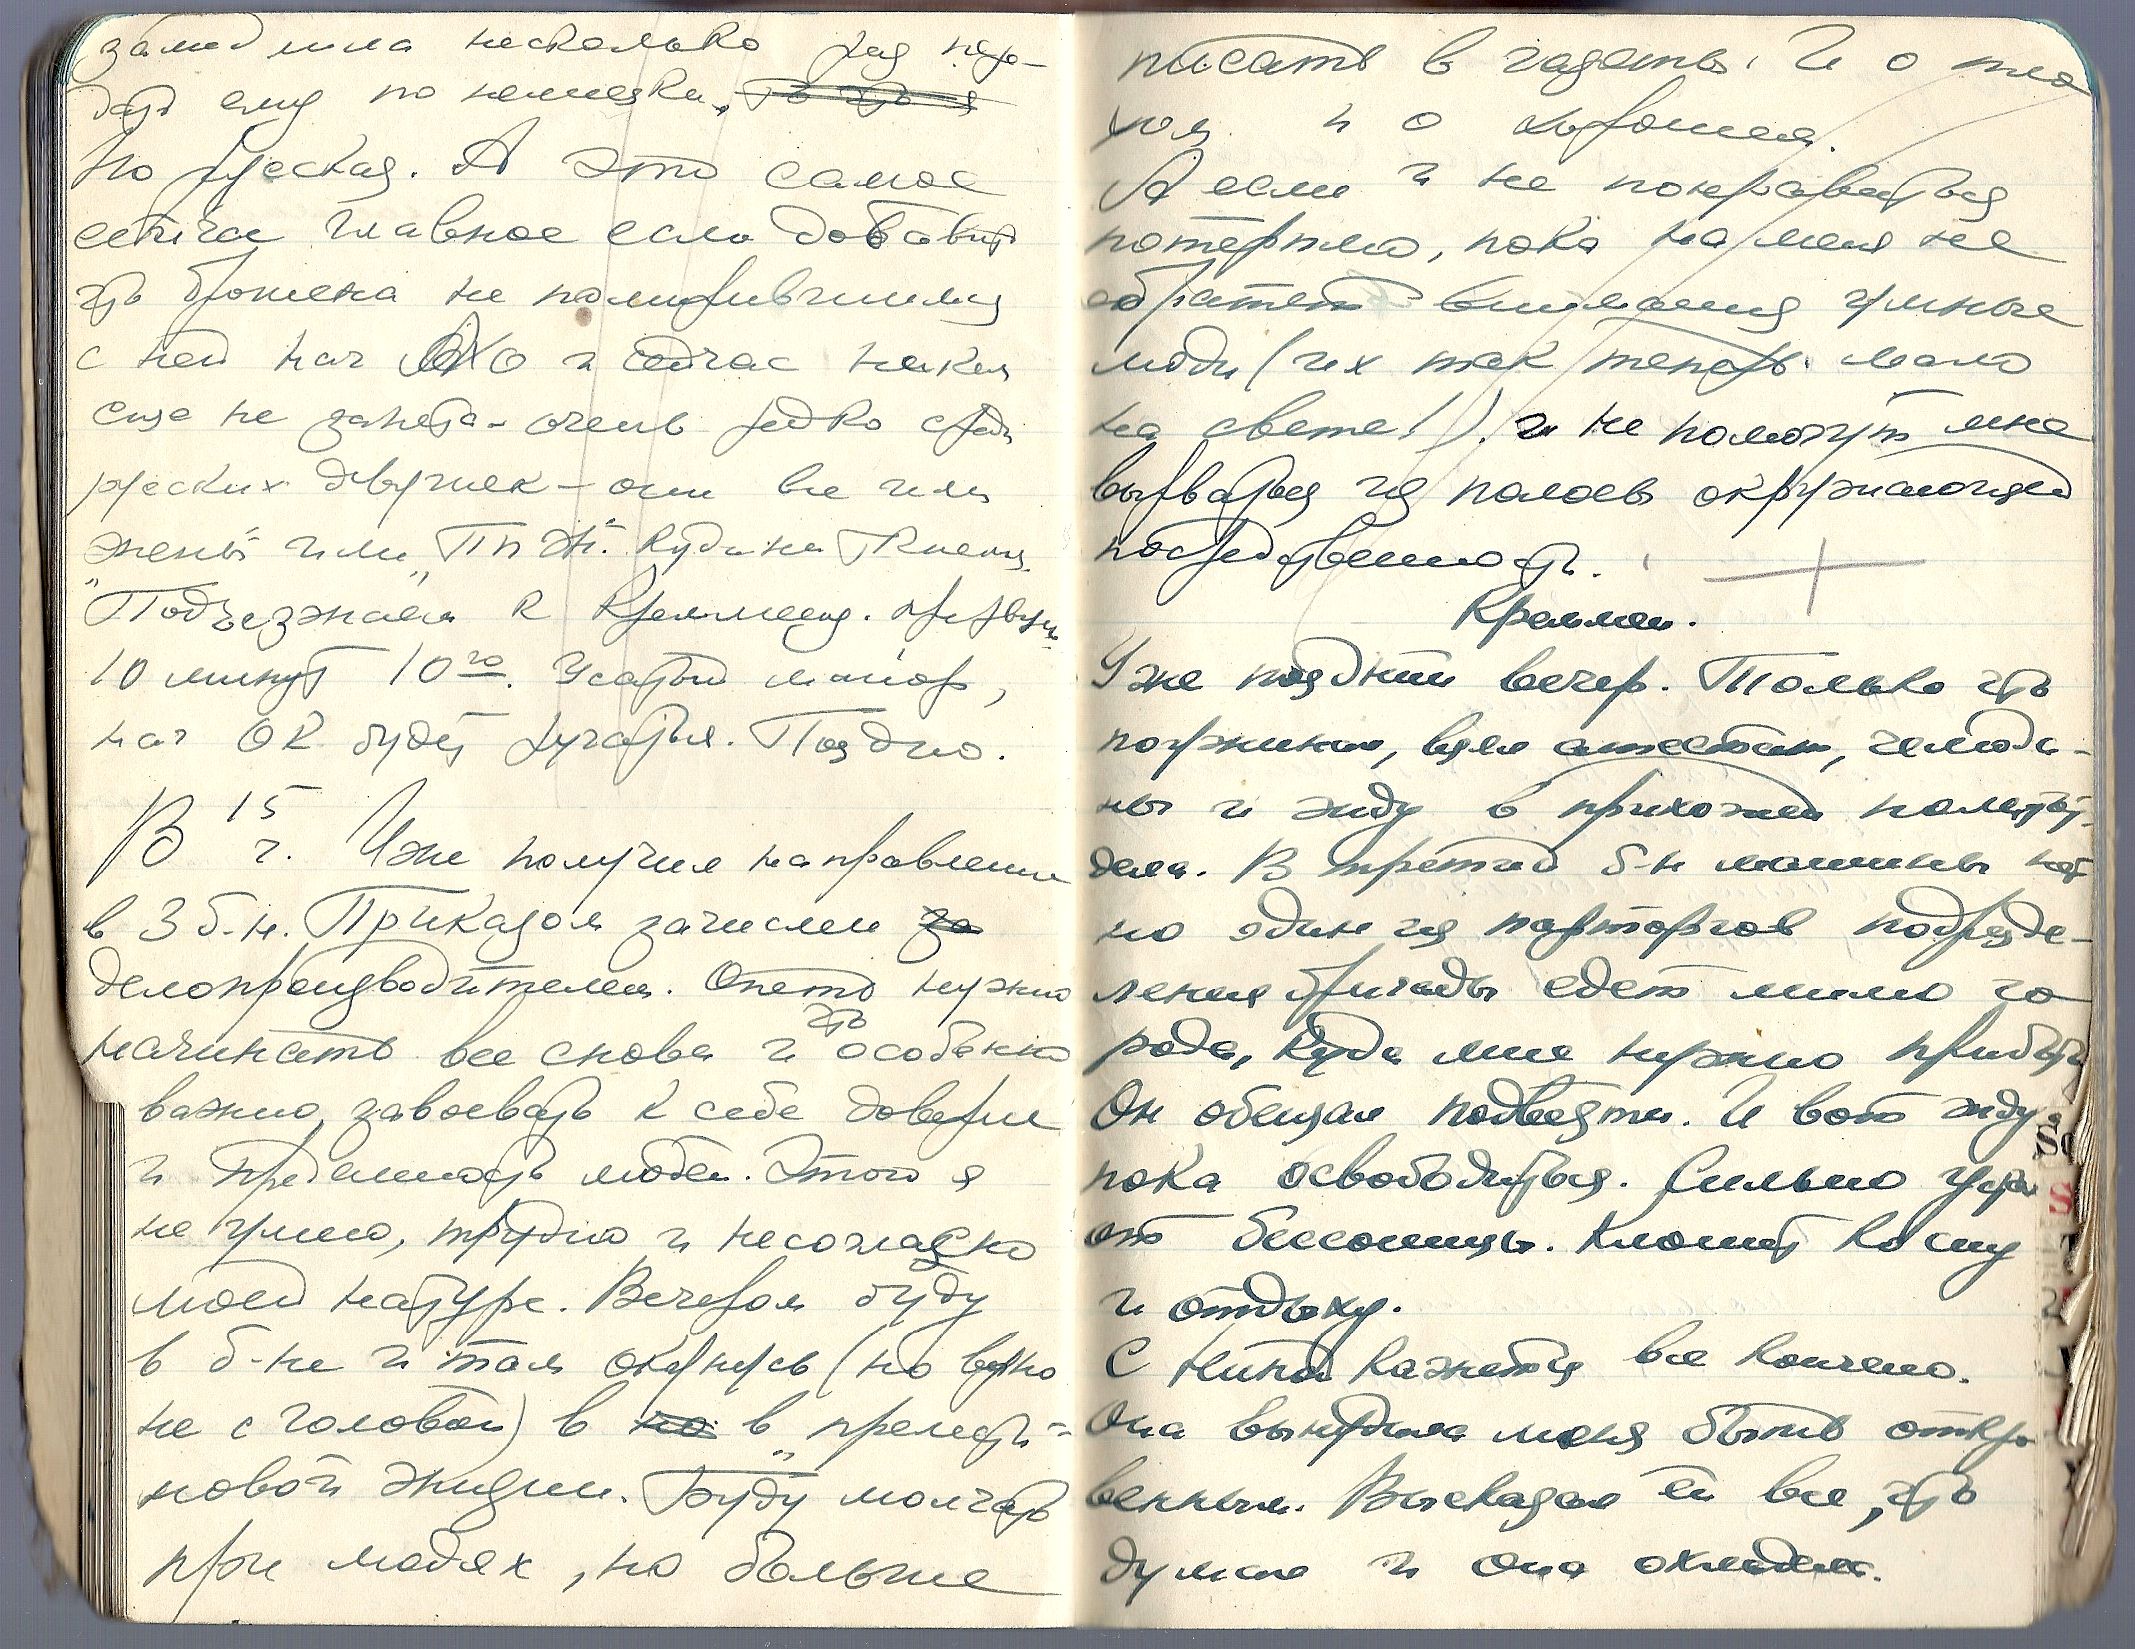 заметила несколько раз подо-
дать ему по немецки.
Но русская. А это самое
сейчас главное если добавить
что брошена не помирившимся
с ней нач ВХО и сейчас никем
еще не занята - очень редко среди
русских девушек - они все или
жены или "ППЖ". Кудина Ткнешь.
"Подъезжаем к Креммену.
10 минут 10го. Усатый майор,
нач ОК будет ругаться. Поздно.
В 15 ч. Уже получил направление
в 3 б-н. Приказом зачислен за
делопроизводителем. Опять нужно
начинать все снова и что особенно
важно, завоевать к себе доверие
и преданность людей. Этого я
не умею, трудно и несогласно
моей натуре. Вечером буду
в б-не и там окунусь (но только
не с головой) в но в "прелести"
новой жизни. Буду молчать
при людях, но больше
писать в газеты. И о пло
хом и о хорошем.
А если и не понравиться
потерплю, пока на меня не
обратят внимания умные
люди (их так теперь мало
на свете!) и не помогут мне
вырваться из полосы окружающей
посредственности.
Креммен.
Уже поздний вечер. Только что
поужинал, взял аттестат, чемода-
ны и жду в прихожей политот-
дела. В третий б-н машины нет
но один из парторгов подразде-
ления бригады едет мимо го
рода, куда мне нужно прибыть
Он обещал подвезти. И вот жду
пока освободиться. Сильно устал
от бессонницы. Клонит ко сну
и отдыху.
С Ниной кажется все кончено.
Она вынудила меня быть откро
венным. Высказал ей все, что
думаю и она охладела.